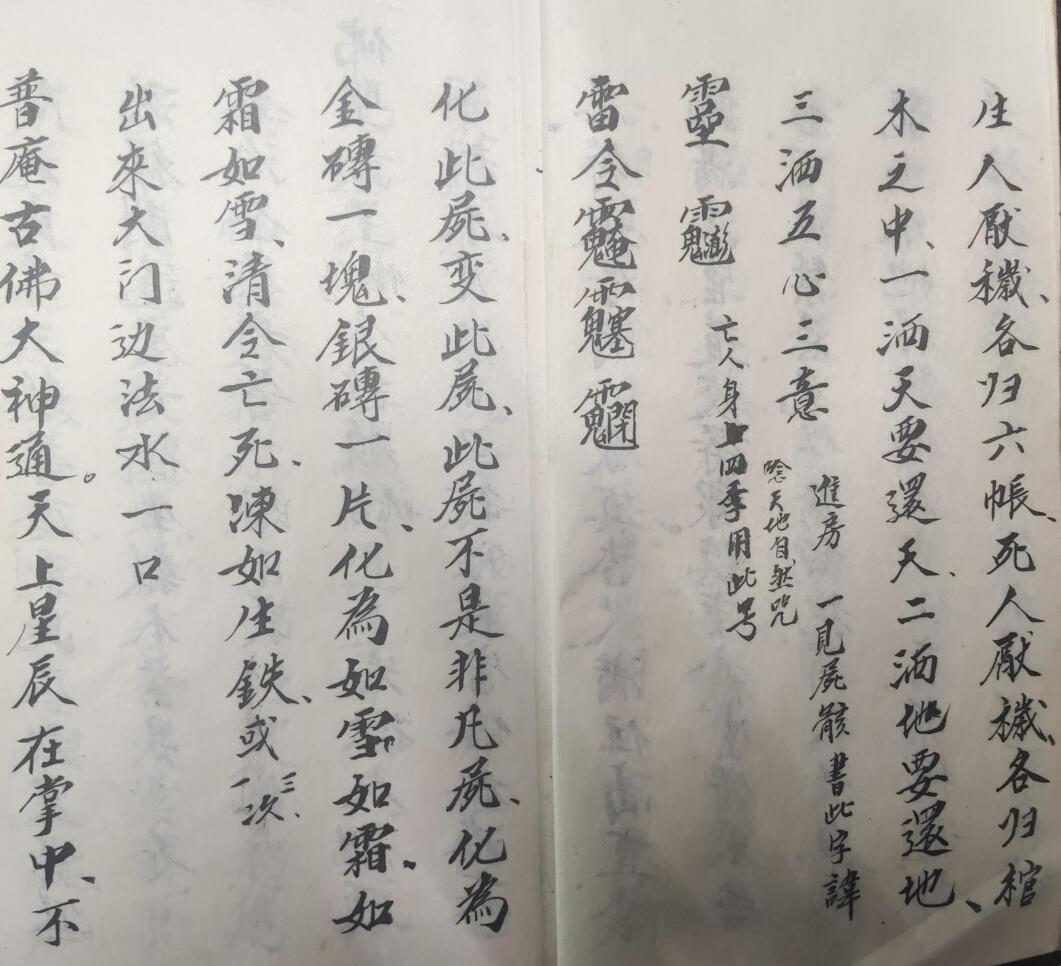 生人厭穢、各归六帳、死人厭穢、各归棺
木之中、一洒天要還天、二洒地要還地、
三洒五心三意
進房 一見屍骸書此字諱
唸天地自然咒
亡人身上四季用此号
雷令
化此屍、变此屍、此屍不是非凡屍、化為
金磚一塊、銀磚一片、化為如雪如霜、如
霜如雪、清令亡死、凍如生鉄、或一次三次、
出來大门边法水一口
普庵古佛大神通。天上星辰在掌中、不